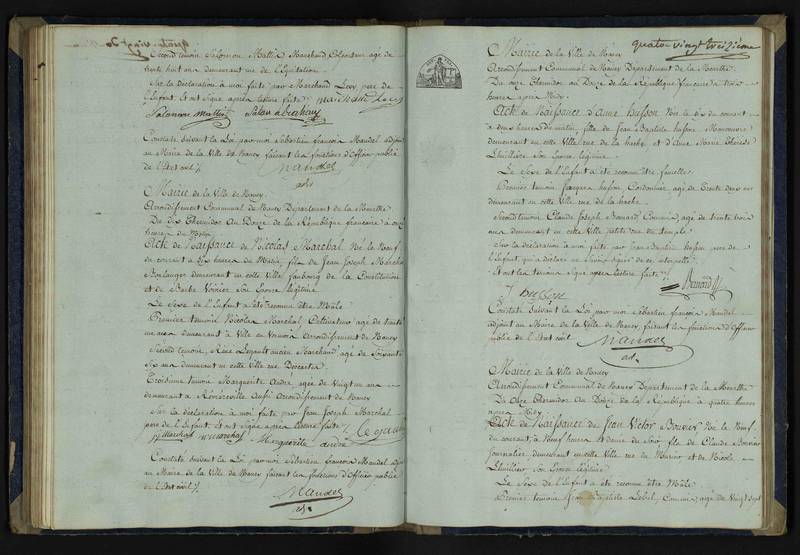 Second temoin, Salomon Mattis Marchand Colporteur agé de
trente huit ans demeurant rue de l'Equitation
Sur la Declaration à moi faite par Marchand Levy pere de
l'Enfant et ont signé après lecture faite
Salomon Mattis
Constaté suivant la Loi par moi Sébastien françois Mandel adjoint
au Maire de la Ville de Nancy faisant les fonctions d'Officier public
de l'Etat civil
Mandel
adj
Mairie de la Ville de Nancy
Arrondissement Communal de Nancy Département de la Meurthe
Du dix Thermidor au Douze de la République française à onze
heures du Matin
Acte de Naissance de Nicolas Marchal Né le Neuf
du courant à dix heures du Matin, fils de Jean Joseph Marchal
Boulanger demeurant en cette Ville faubourg de la Constitution
et de Barbe Voinier son Epouse légitime
Le Sexe de l'Enfant a été reconnu être Mâle
Premier temoin Nicolas Marchal, Cultivateur agé de trente
un ans demeurant à Ville en Arrondissement de Nancy
Second temoin, René ancien Marchand, agé de Soixante
Six ans demeurant en cette Ville rue Descartes
Troisieme temoin Marguerite André agée de Vingt un ans
demeurant à Réméréville Aussi Arrondissement de Nancy
Sur la déclaration à moi faite par Jean Joseph Marchal
pere de l'Enfant et ont signé après lecture faite
jj Marchal n marchal Marguerite andré
Constaté suivant la Loi par moi Sébastien françois Mandel adjoint
au Maire de la Ville de Nancy faisant les fonctions d'Officier public
de l'Etat civil
Mandel
adj
quatre vingt treizième
Mairie de la Ville de Nancy
Arrondissement Communal de Nancy Département de la Meurthe
Du onze Thermidor au Douze de la République française à trois
heures après Midi
Acte de Naissance d'Anne husson Née le dix du courant
à deux heures du matin, fille de Jean Baptiste husson Manoeuvre
demeurant en cette Ville rue de la hache et d'Anne Marie Thérèse
Lhuillier son Epouse légitime
Le Sexe de l'Enfant a été reconnu être femelle
Premier temoin Jacques husson Cordonnier, agé de Trente deux ans
demeurant en cette Ville rue de la hache
Second temoin Claude Joseph Bernard Commis, agé de trente trois
ans demeurant en cette Ville petite rue du temple
Sur la déclaration à moi faite par Jean Baptiste husson pere de
l'Enfant qui a déclaré ne savoir signer de ce interpellé
Et ont les témoins signé après lecture faite
Bernard
J husson
Constaté suivant la Loi par moi Sébastien françois Mandel
adjoint au Maire de la Ville de Nancy, faisant les fonctions d'Officier
public de l'Etat civil
Mandel
adj
Mairie de la Ville de Nancy
Arrondissement Communal de Nancy Département de la Meurthe
Du Onze Thermidor au Douze de la République à quatre heures
après Midi
Acte de Naissance de Jean Victor Bouvier Né le Neuf
du courant, à Neuf heures et demie du Soir, fils de Claude Bouvier
Journalier, demeurant en cette Ville rue du et de Nicole
Lhuillier son Epouse légitime
Le Sexe de l'Enfant a été reconnu être Mâle
Premier temoin Jean Baptiste Commis, agé de Vingt Sept